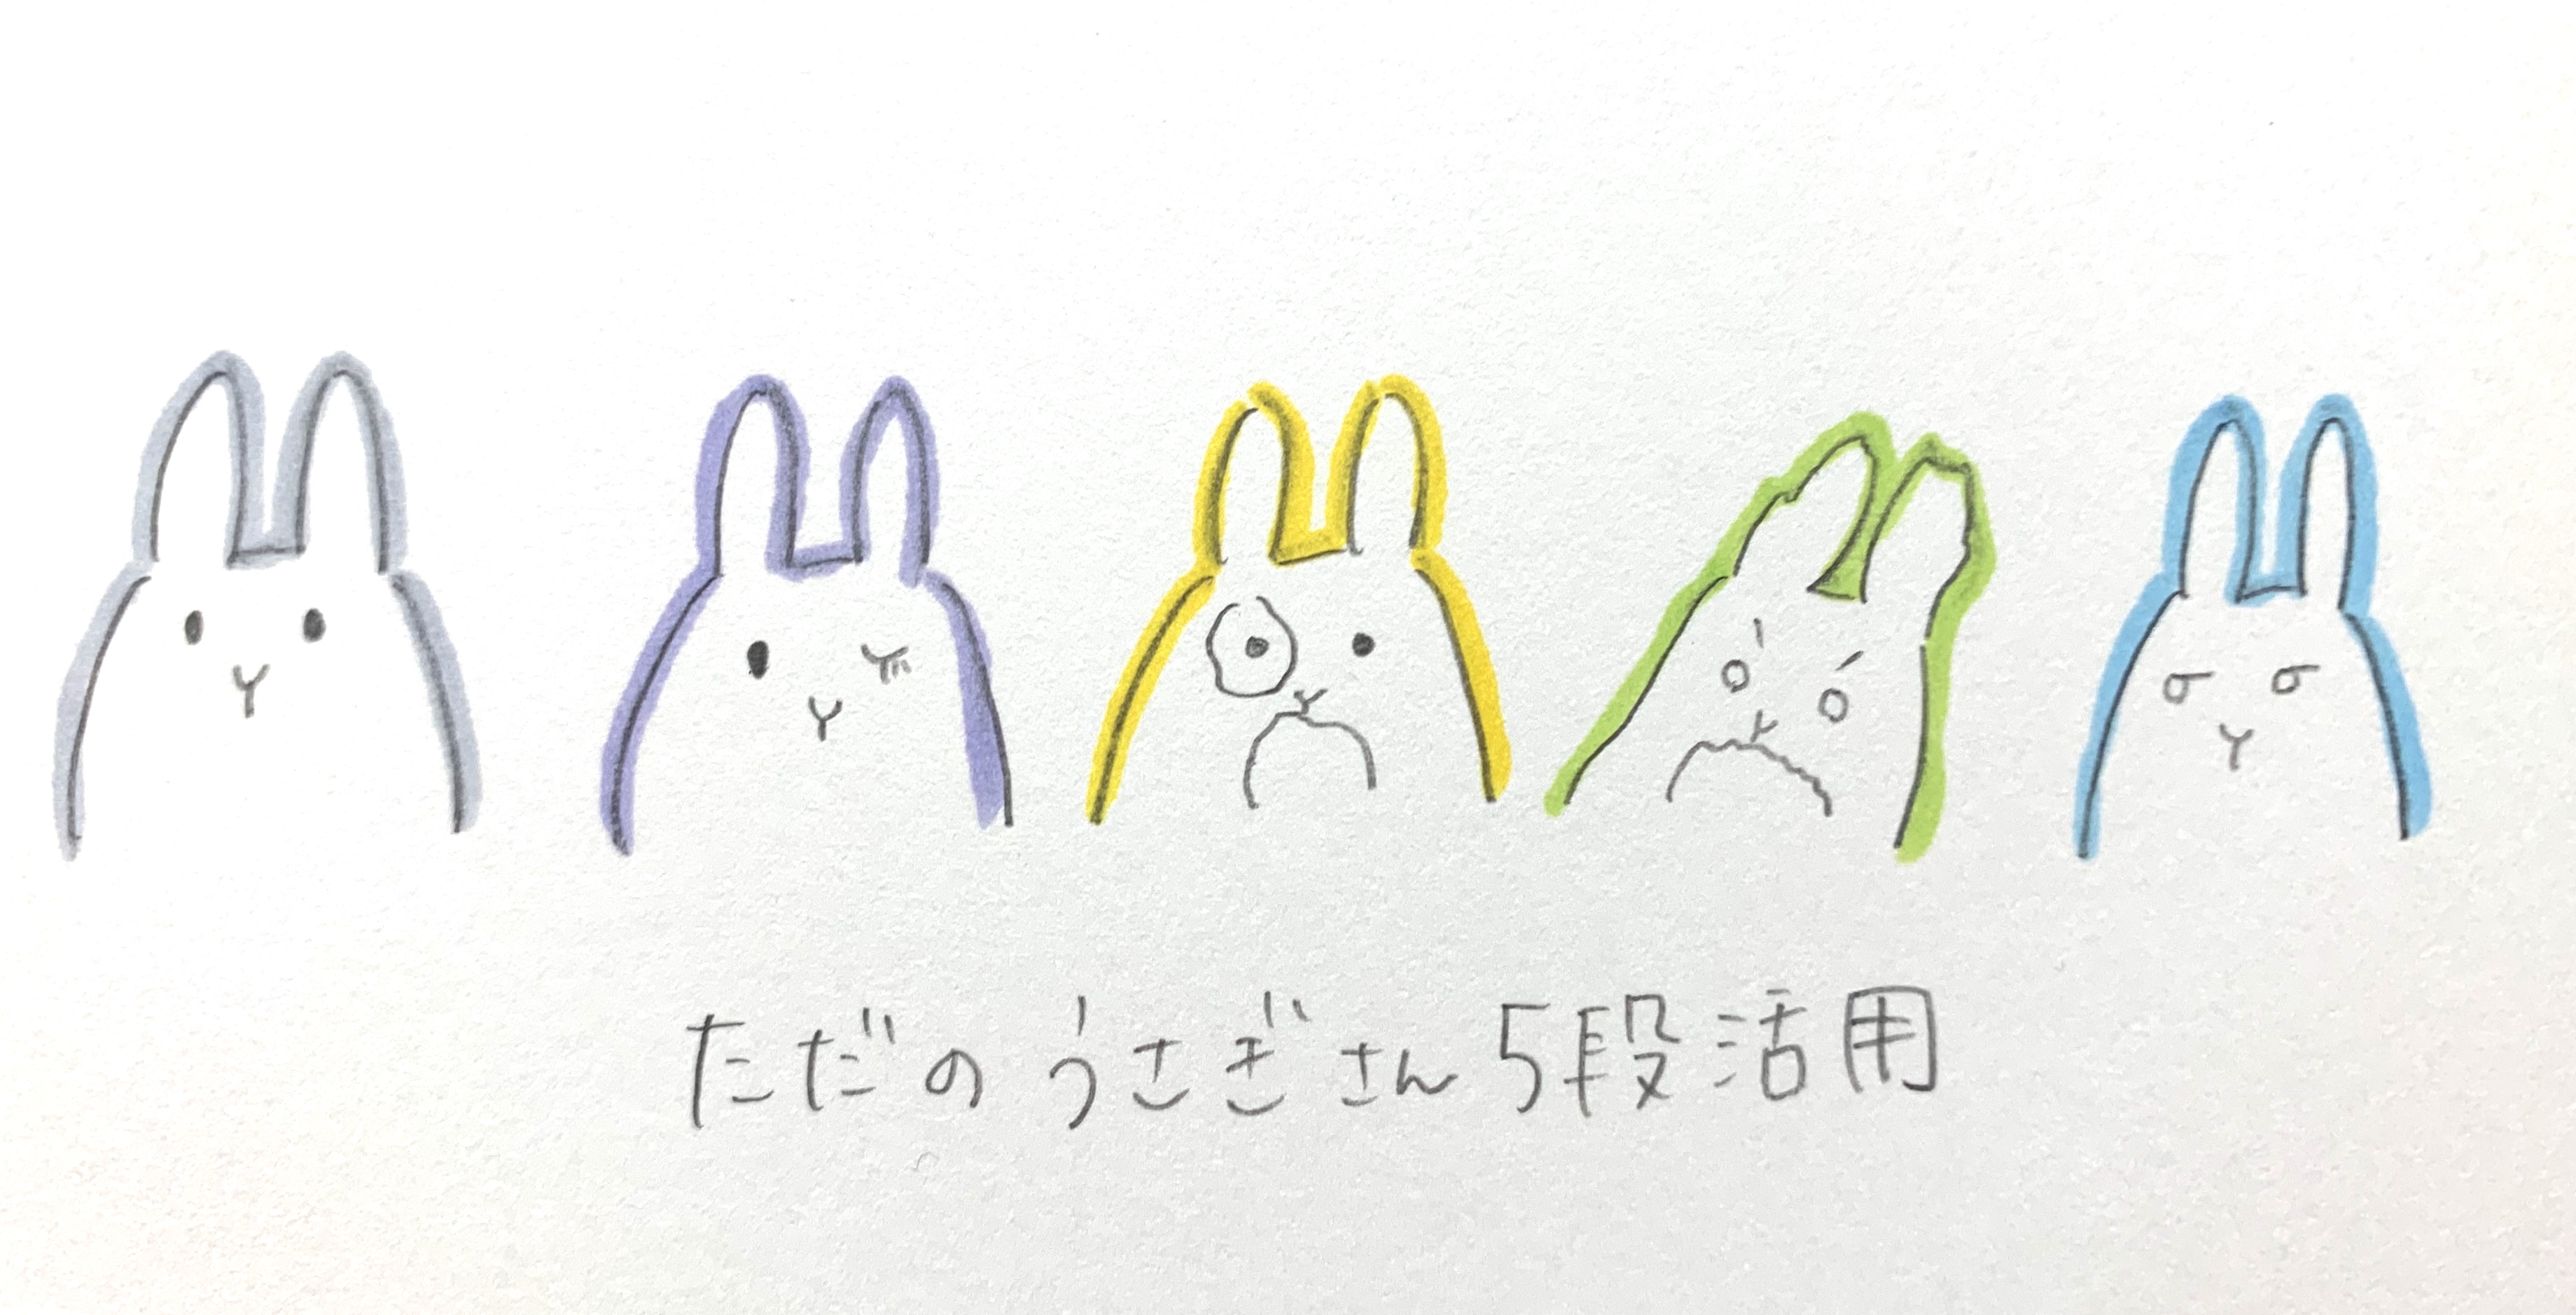 ただのうさぎさん5段活用